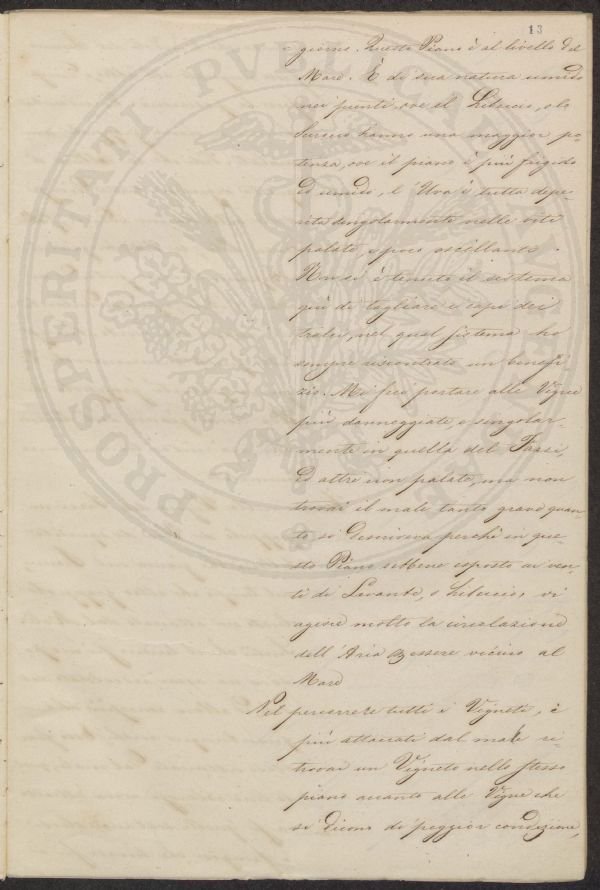 13
= giorno. Questo Piano è al livello del
Mare. È di sua natura umido
nei punti, ove il Libecio, o lo
hanno una maggior po=
tenza, ove il piano è più frigido
ed umido, l'Uva è tutta depe=
rita singolarmente nelle viti
palate, e poco oscillante.
Non si è tenuto il sistema
qui di tagliare i capi dei
tralci, nel qual sistema ho
sempre riscontrato un benefi=
zio. Mi feci portare alle Vigne
più danneggiate, e singolar=
mente in quella del Fassi,
ed altre non palate, ma non
trovai il male tanto grave quan=
to si descriveva perchè in que=
sto Piano sebbene esposto ai ven=
ti di Levante, e Libecio, vi
agisce molto la circolazione
dell'Aria p essere vicino al
Mare
Nel percorrere tutti i Vigneti, i
più attaccati dal male ri=
trovai un Vigneto nello stesso
piano accanto alle Vigne che
si dicono di peggior condizione,
PROSPERITATI PUBLICAE